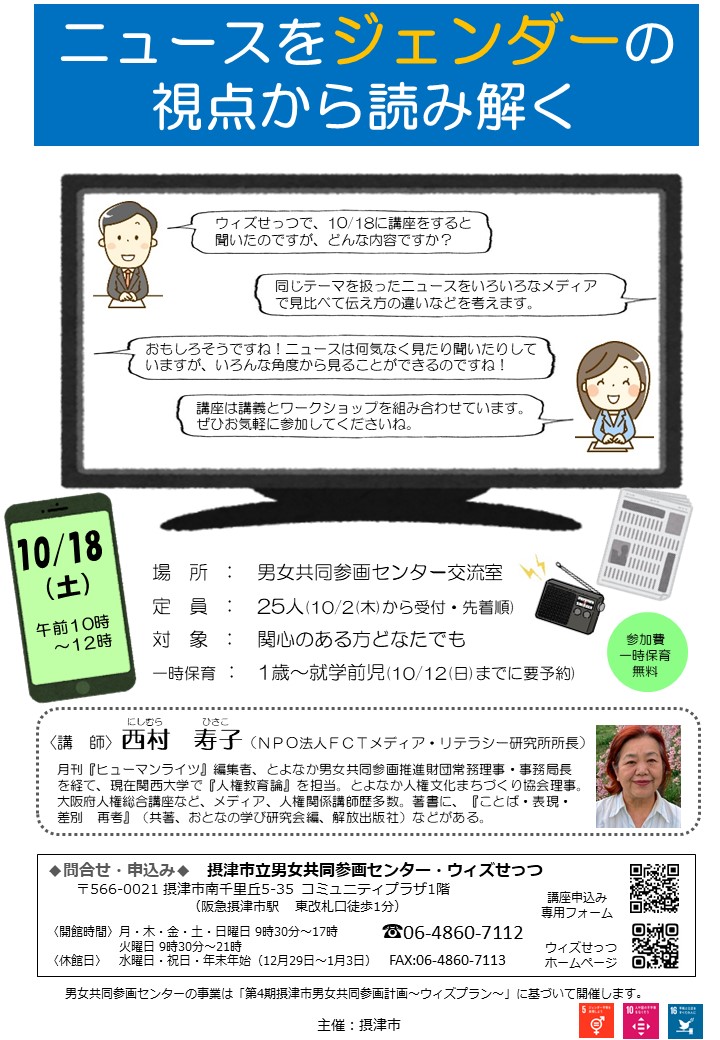 ニュースをジェンダーの
視点から読み解く
ウィズせっつで、10/18に講座をすると
聞いたのですが、どんな内容ですか？
同じテーマを扱ったニュースをいろいろなメディア
で見比べて伝え方の違いなどを考えます。
おもしろそうですね！ニュースは何気なく見たり聞いたりして
いますが、いろんな角度から見ることができるのですね！
講座は講義とワークショップを組み合わせています。
ぜひお気軽に参加してくださいね。
10/18
（土）
午前10時
～12時
場　所　：　男女共同参画センター交流室
定　員　：　25人(10/2(木)から受付・先着順)
対　象　：　関心のある方どなたでも
一時保育　：　1歳～就学前児(10/12(日)までに要予約)
参加費
一時保育
無料
にしむら　ひさこ
〈講　師〉西村　寿子（ＮＰＯ法人ＦＣＴメディア・リテラシー研究所所長）
月刊『ヒューマンライツ』編集者、とよなか男女共同参画推進財団常務理事・事務局長
を経て、現在関西大学で『人権教育論』を担当。とよなか人権文化まちづくり協会理事。
大阪府人権総合講座など、メディア、人権関係講師歴多数。著書に、『ことば・表現・
差別　再考』（共著、おとなの学び研究会編、解放出版社）などがある。
◆問合せ・申込み◆　摂津市立男女共同参画センター・ウィズせっつ
〒566-0021 摂津市南千里丘5-35 コミュニティプラザ1階
（阪急摂津市駅　東改札口徒歩1分）
〈開館時間〉月・木・金・土・日曜日 9時30分～17時
火曜日 9時30分～21時
〈休館日〉　水曜日・祝日・年末年始（12月29日～1月3日）
☎06-4860-7112
FAX:06-4860-7113
講座申込み
専用フォーム
ウィズせっつ
ホームページ
男女共同参画センターの事業は「第4期摂津市男女共同参画計画～ウィズプラン～」に基づいて開催します。
主催：摂津市
5
10
16